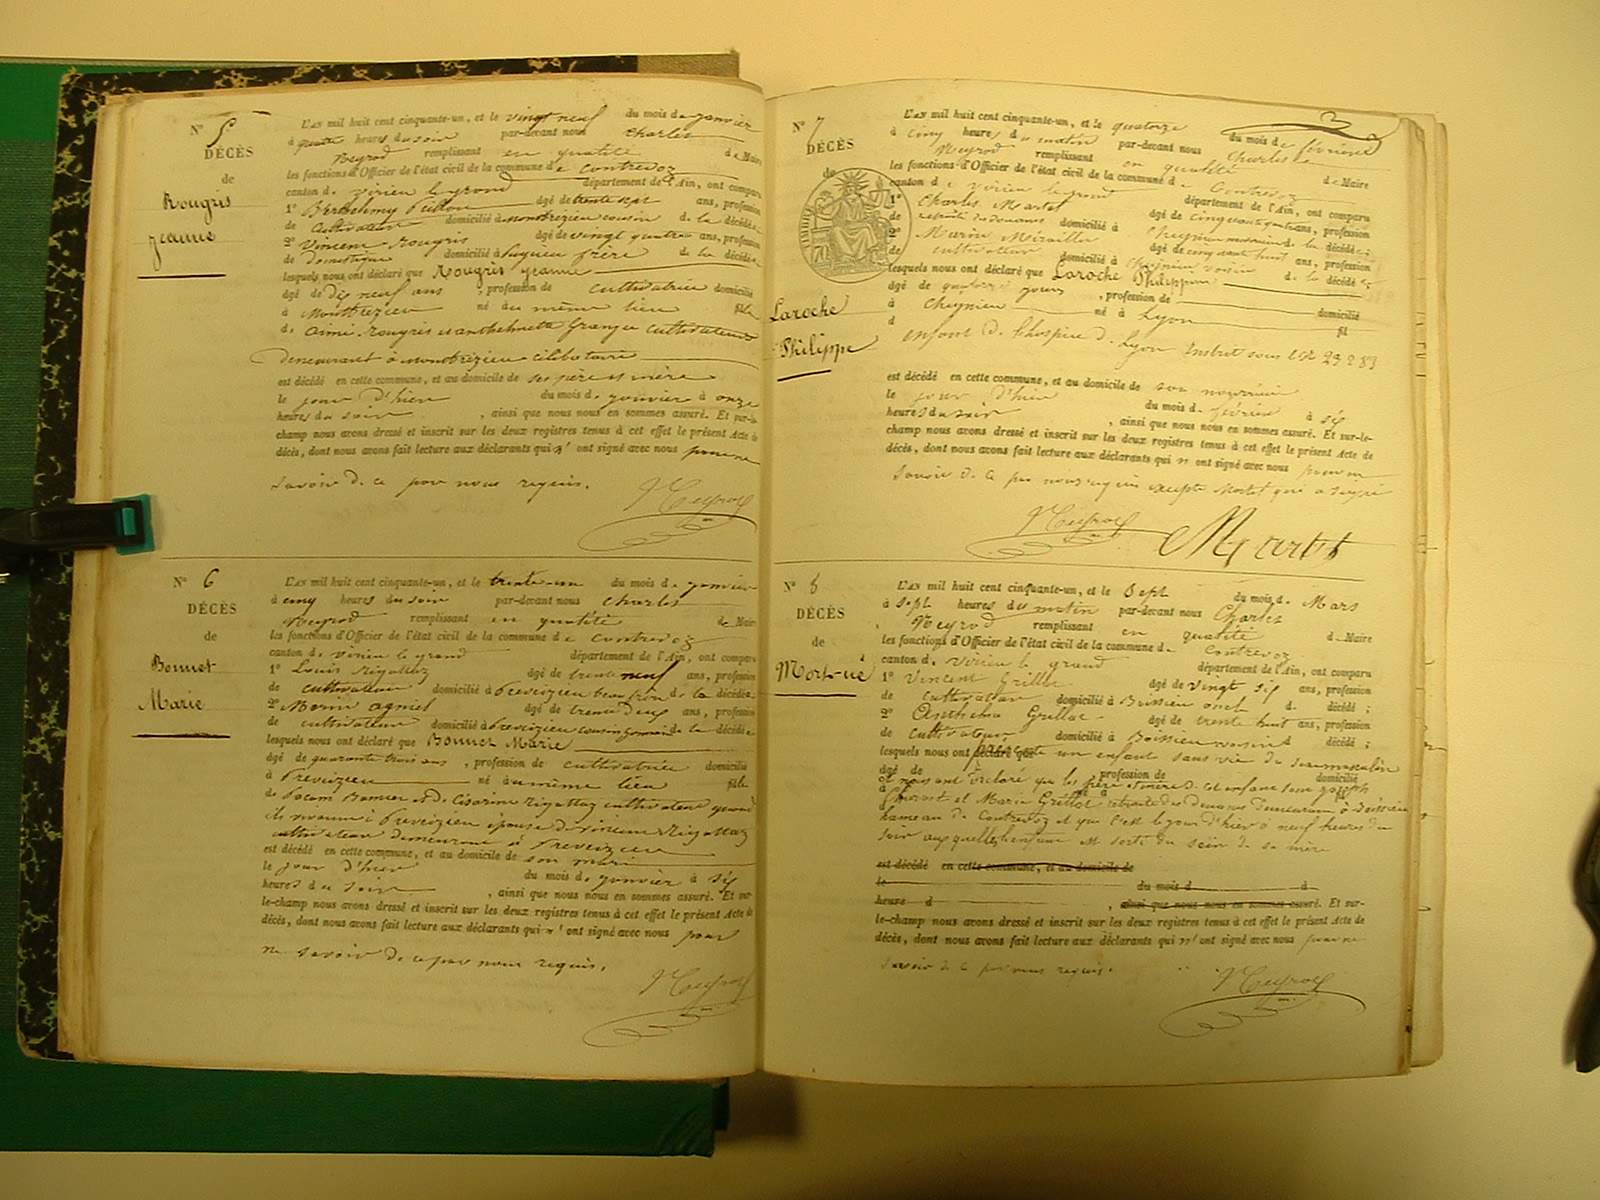 N° 5
DÉCÈS
de
Rougris
Jeanne
L'AN mil huit cent cinquante-un, et le vingt neuf du mois de janvier
à quatre heures du soir par-devant nous Charles
Neyrod remplissant en qualité de Maire
les fonctions d'Officier de l'état civil de la commune de Contrevoz
canton de Virieu le grand département de l'Ain, ont comparu
1° Berthelmy âgé de trente ans, profession
de Cultivateur domicilié à Montbrezieu cousin de la décédée
2° Vincent Rougris âgé de vingt quatre ans, profession
de domestique domicilié à frère de la décédée
lesquels nous ont déclaré que Rougris Jeanne
âgé de dix neuf ans, profession de cultivatrice domicilié
à Montbrezieu né au même lieu fille
de Aimé Rougris et anthelmette Granger cultivateurs
demeurant à Montbrezieu célibataire
est décédé en cette commune, et au domicile de ses père et mère
le jour d'hier du mois de janvier à onze
heures du soir, ainsi que nous nous en sommes assuré. Et sur-le-
champ nous avons dressé et inscrit sur les deux registres tenus à cet effet le présent Acte de
décès, dont nous avons fait lecture aux déclarants qui n'ont signé avec nous pour ne
savoir de ce par nous requis.
Neyrod
N° 6
DÉCÈS
de
Bonnet
Marie
L'AN mil huit cent cinquante-un, et le trente-un du mois de janvier
à cinq heures du soir par-devant nous Charles
Neyrod remplissant en qualité de Maire
les fonctions d'Officier de l'état civil de la commune de Contrevoz
canton de Virieu le grand département de l'Ain, ont comparu
1° Louis Rigottaz âgé de trente neuf ans, profession
de cultivateur domicilié à Preveizieu beau frère de la décédée
2° âgé de trente deux ans, profession
de cultivateur domicilié à Preveizieu cousin germain de la décédée
lesquels nous ont déclaré que Bonnet Marie
âgé de quarante trois ans, profession de cultivatrice domicilié
à Preveizieu né au même lieu fille
de Bonnet et de Césarine Rigottaz cultivateurs quand
ils vivaient à Preveizieu épouse de Vincent Rigottaz
cultivateur demeurant à Preveizieu
est décédé en cette commune, et au domicile de son mari
le jour d'hier du mois de janvier à six
heures du soir, ainsi que nous nous en sommes assuré. Et sur-
le-champ nous avons dressé et inscrit sur les deux registres tenus à cet effet le présent Acte de
décès, dont nous avons fait lecture aux déclarants qui n'ont signé avec nous pour
ne savoir de ce par nous requis.
Neyrod
3
N° 7
DÉCÈS
de
Laroche
Philippe
L'AN mil huit cent cinquante-un, et le quatorze du mois de février
à cinq heures du matin par-devant nous Charles
Neyrod remplissant en qualité de Maire
les fonctions d'Officier de l'état civil de la commune de Contrevoz
canton de Virieu le grand département de l'Ain, ont comparu
1° Charles Martet âgé de cinquante quatre ans, profession
de retraité des douanes domicilié à Cheignieu de la décédé
2° Marin Miraillet âgé de cinquante huit ans, profession
de cultivateur domicilié à Cheignieu voisin de la décédé
lesquels nous ont déclaré que Laroche Philippe
âgé de quatorze jours, profession de domicilié
à Cheignieu né à Lyon fil
d enfant de l'hospice de Lyon Inscrit sous le N° 29283
est décédé en cette commune, et au domicile de son nourricier
le jour d'hier du mois de février à six
heures du soir, ainsi que nous nous en sommes assuré. Et sur-le-
champ nous avons dressé et inscrit sur les deux registres tenus à cet effet le présent Acte de
décès, dont nous avons fait lecture aux déclarants qui n'ont signé avec nous pour ne
savoir de ce par nous requis excepté Martet qui a signé
Neyrod
Martet
N° 8
DÉCÈS
de
Mort-né
L'AN mil huit cent cinquante-un, et le Sept du mois de Mars
à Sept heures du matin par-devant nous Charles
Neyrod remplissant en qualité de Maire
les fonctions d'Officier de l'état civil de la commune de Contrevoz
canton de Virieu le grand département de l'Ain, ont comparu
1° Vincent Grillot âgé de vingt six ans, profession
de cultivateur domicilié à Boissieu oncle d décédé;
2° Anthelme Grillot âgé de trente huit ans, profession
de cultivateur domicilié à Boissieu voisin d décédé;
lesquels nous ont déclaré que présenté un enfant sans vie du sexe masculin
âgé de profession de domicilié
et nous ont déclaré que les père et mère de cet enfant sont Joseph
et Marie Grillot retraité des Douanes demeurant à Boissieu
hameau de Contrevoz et que c'est le jour d'hier à neuf heures du
soir auxquelles l'enfant est sorti du sein de sa mère
est décédé en cette commune, et au domicile de
le du mois d d
heure d, ainsi que nous nous en sommes assuré. Et sur-
le-champ nous avons dressé et inscrit sur les deux registres tenus à cet effet le présent Acte de
décès, dont nous avons fait lecture aux déclarants qui n'ont signé avec nous pour ne
savoir de ce par nous requis.
Neyrod